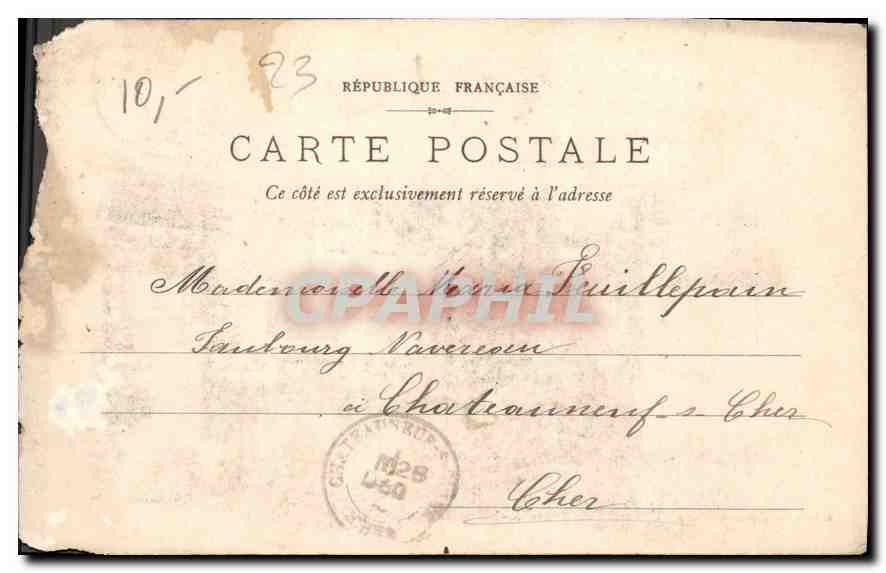 10,- 23
RÉPUBLIQUE FRANÇAISE
CARTE POSTALE
Ce côté est exclusivement réservé à l'adresse
Mademoiselle Maria Feuillepain
CPAPHIL
Faubourg
à Chateauneuf-s-Cher
CHATEAUNEUF
Cher